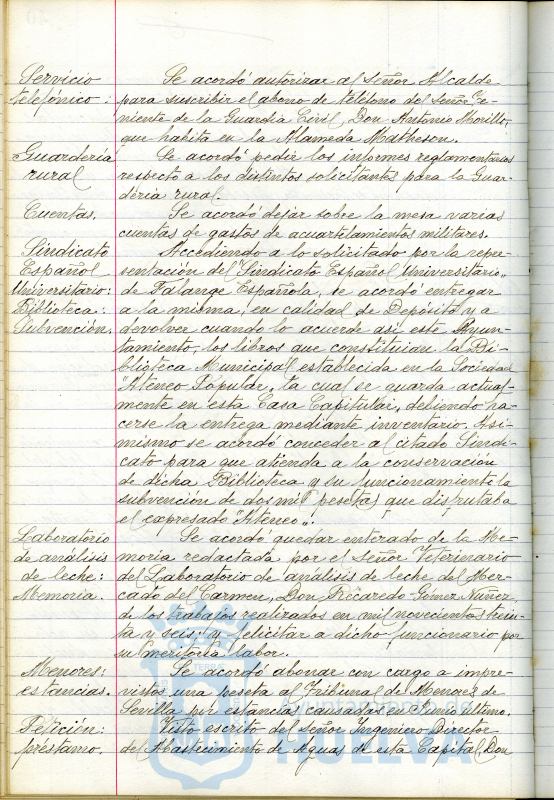 Servicio
telefónico:
Se acordó autorizar al señor Alcalde
para suscribir el abono de teléfono del Señor Te-
niente de la Guardia Civil, Don Antonio Morillo,
que habita en la Alameda Matheson.
Guardería
rural
Se acordó pedir los informes reglamentarios
respecto a los distintos solicitantes para la Guar-
dería rural.
Cuentas.
Se acordó dejar sobre la mesa varias
cuentas de gastos de acuartelamientos militares.
Sindicato
Español
Universitario:
Biblioteca:
Subvención.
Accediendo a lo solicitado por la repre-
sentación del "Sindicato Español Universitario"
de Falange Española, se acordó entregar
a la misma, en calidad de Depósito y a
devolver cuando lo acuerde así este Ayun-
tamiento, los libros que constituían la Bi-
blioteca Municipal establecida en la Sociedad
"Ateneo Popular", la cual se guarda actual-
mente en esta Casa Capitular, debiendo ha-
cerse la entrega mediante inventario. Asi-
mismo se acordó conceder al citado Sindi-
cato para que atienda a la conservación
de dicha Biblioteca y su funcionamiento la
subvención de dos mil pesetas que disfrutaba
el expresado "Ateneo".
Laboratorio
de análisis
de leche:
Memoria.
Se acordó quedar enterado de la Me-
moria redactada por el señor Veterinario
del Laboratorio de análisis de leche del Mer-
cado del Carmen, Don Ricaredo Gómez Nuñez,
de los trabajos realizados en mil novecientos trein-
ta y seis, y felicitar a dicho funcionario por
su meritoria labor.
Menores:
estancias.
Se acordó abonar con cargo a impre-
vistos una peseta al Tribunal de Menores de
Sevilla por estancias causadas en Junio último.
Petición:
préstamo.
Visto escrito del señor Ingeniero Director
del Abastecimiento de Aguas de esta Capital, Don
Ayuntamiento de
HUELVA